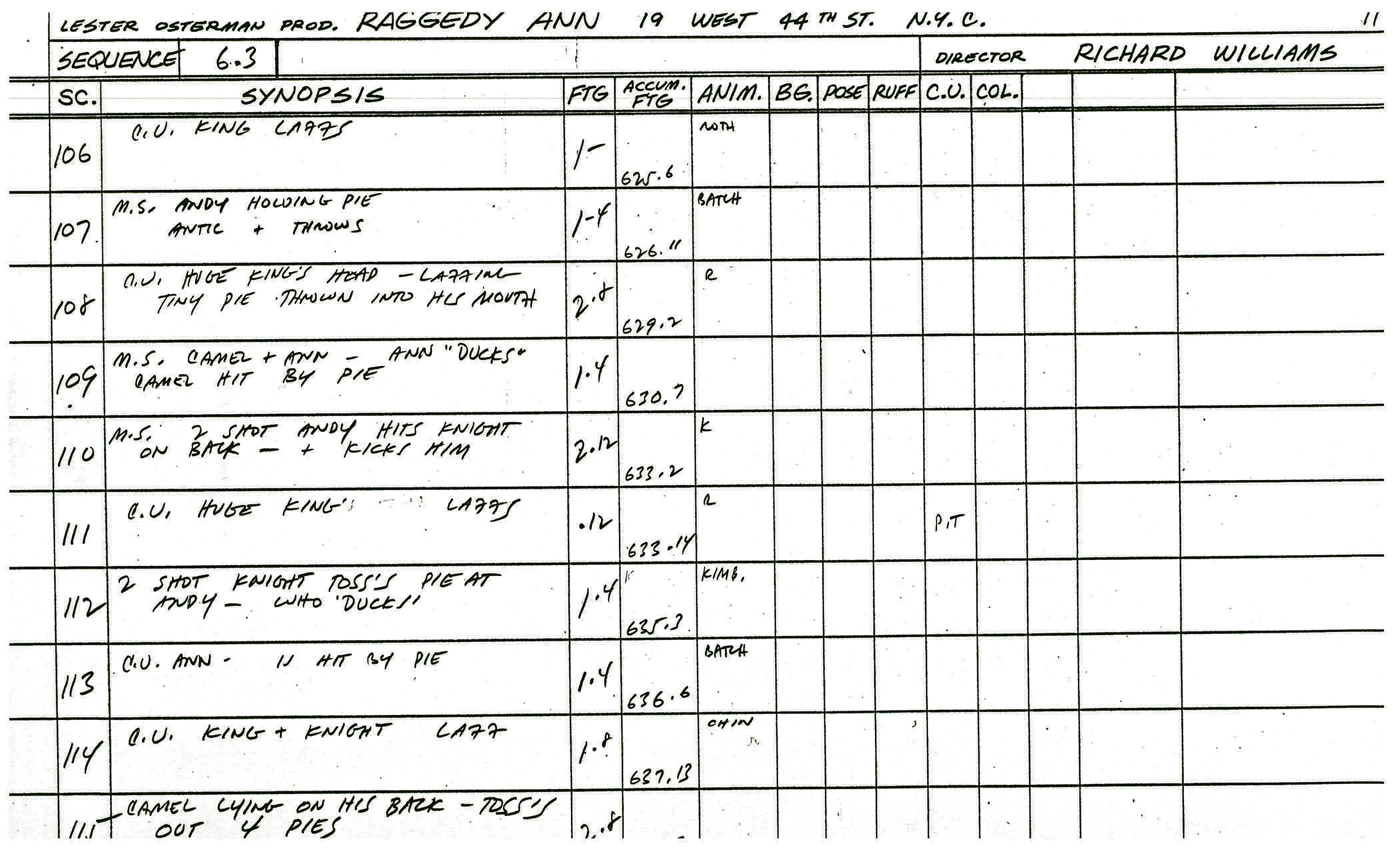 LESTER OSTERMAN PROD. RAGGEDY ANN 19 WEST 44TH ST. N.Y.C. 11
SEQUENCE 6.3 DIRECTOR RICHARD WILLIAMS
SC. SYNOPSIS FTG ACCUM. FTG ANIM. BG. POSE RUFF C.U. COL.
106 C.U. KING LAFFS 1- 625.6 ROTH
107 M.S. ANDY HOLDING PIE 1-4 626.11 BATCH
ANTIC + THROWS
108 C.U. HUGE KING'S HEAD - LAFFING 2.8 629.2 R
TINY PIE THROWN INTO HIS MOUTH
109 M.S. CAMEL + ANN - ANN "DUCKS" 1.4 630.7
CAMEL HIT BY PIE
110 M.S. 2 SHOT ANDY HITS KNIGHT 2.12 633.2 K
ON BACK - + KICKS HIM
111 C.U. HUGE KING'S LAFFS .12 633.14 R P.T
112 2 SHOT KNIGHT TOSS'S PIE AT 1.4 635.3 KIMB.
ANDY - WHO "DUCKS"
113 C.U. ANN - IS HIT BY PIE 1.4 636.6 BATCH
114 C.U. KING + KNIGHT LAFF 1.8 637.13 CHIN
CAMEL LYING ON HIS BACK - TOSS'S 2.8
OUT 4 PIES